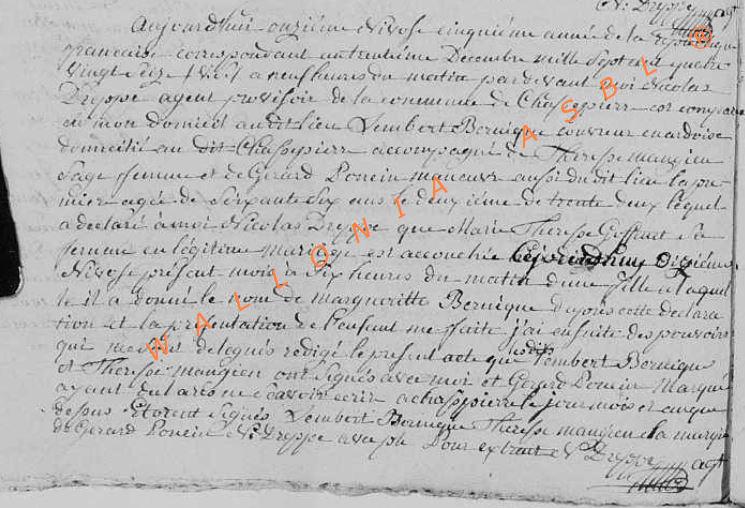 N. Dreppe agt
Aujourd'hui onzieme Nivose cinquiéme année de la republique
francaise correspondant au trentiéme Decembre mille Sept cent quatre
vingt dix a neuf heures du matin pardevant moi Nicolas
Dreppe agent provisoir de la commune de Chassepierre est comparu
en mon domicil au dit lieu Lembert Bernique couvreur en ardoise
domicilié au dit Chassepierre accompagné de Therese mangien
Sage femme et de Gerard Poncin maneuvre aussi du dit lieu la pre
miere agée de Soixante Six ans le deuxiéme de trente deux lequel
a declaré à moi Nicolas Dreppe que Marie Therese Sa
femme en légitime mariage est accouchée cejourdhuy Dixiéme
Nivose présent mois à Six heures du matin d'une fille a laquel
le il a donné le nom de margueritte Bernique d'apres cette declara
tion et la présentation de l'enfant me faite j'ai ensuite des pouvoirs
qui me sont delegués redigé le present acte que lesdits Lembert Bernique
et Therese mangien ont signés avec moi et Gerard Poncin Marqué
ayant declaré ne Savoir ecrir a chassepierre le jour mois et an que
dessus Etoient Signés Lembert Bernique Therese mangien la marque
de Gerard Poncin N. Dreppe avec ph Pour extrait N. Dreppe agt
WALLONIA ASBL ®